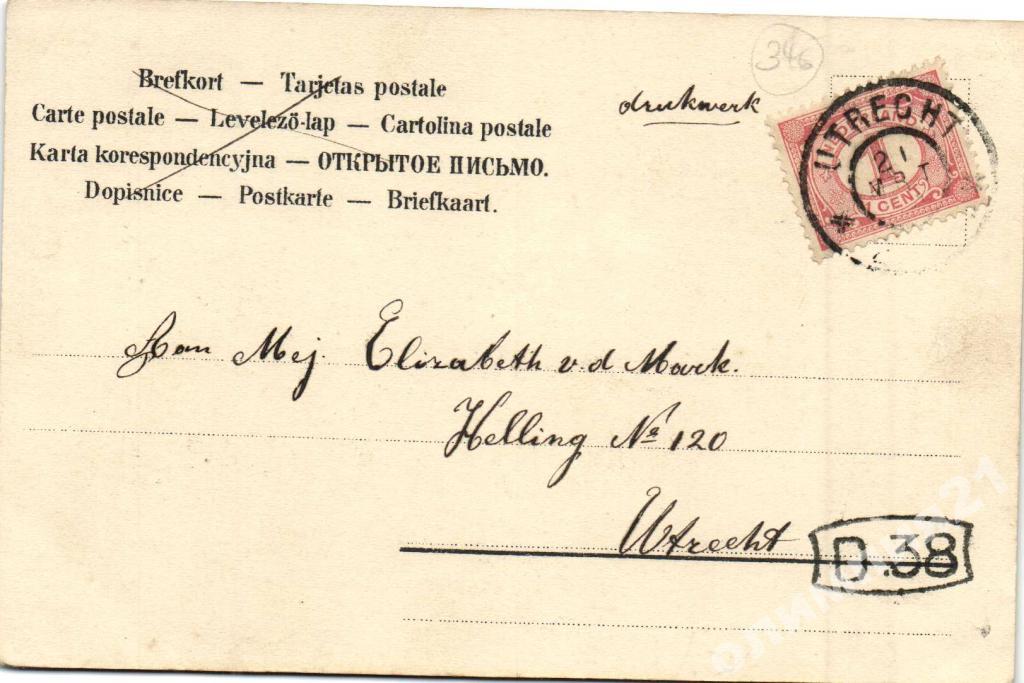 346
Brefkort — Tarjetas postale
Carte postale — Levelező-lap — Cartolina postale
Karta korespondencyjna — ОТКРЫТОЕ ПИСЬМО.
Dopisnice — Postkarte — Briefkaart.
drukwerk
UTRECHT
1 CENT
Aan Mej. Elizabeth v. d Mark.
Helling No 120
Utrecht
D.38